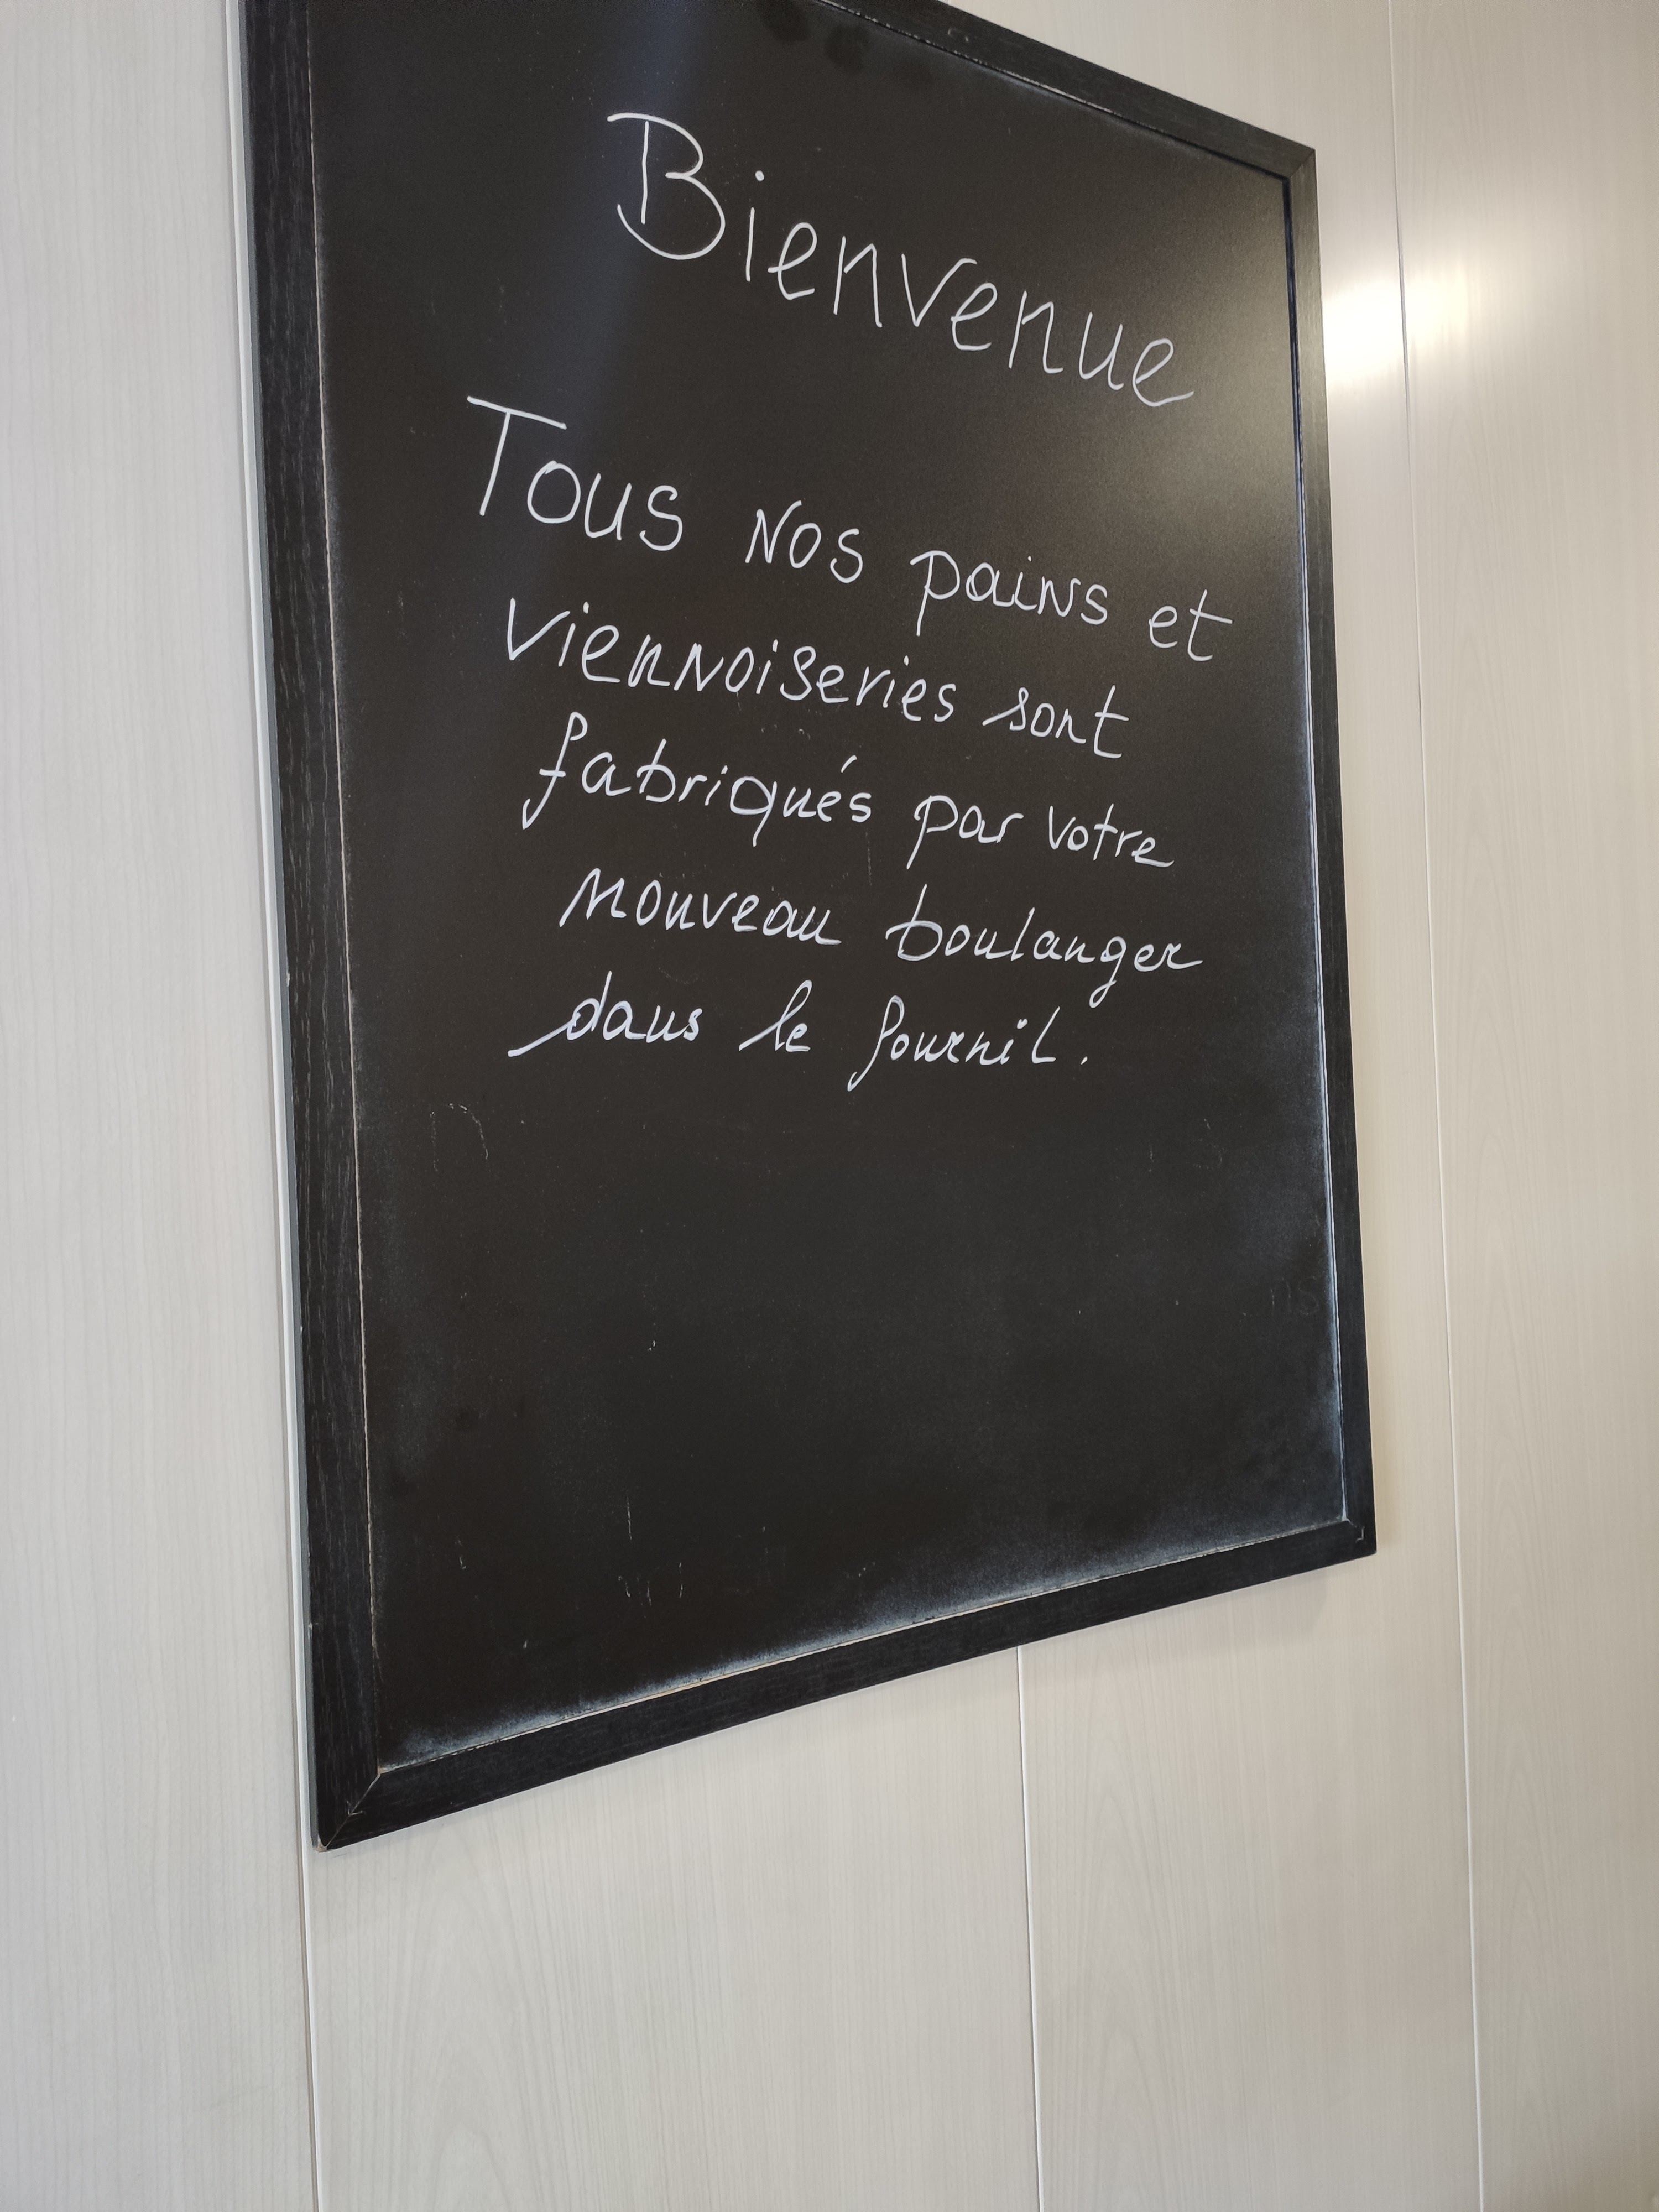 Bienvenue
Tous nos pains et
viennoiseries sont
fabriqués par votre
nouveau boulanger
dans le fournil.